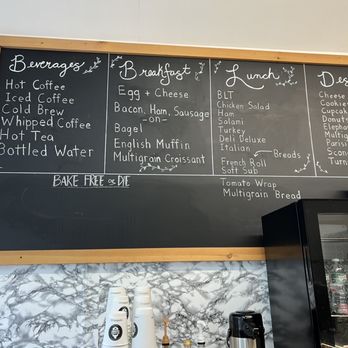 Beverages
Hot Coffee
Iced Coffee
Cold Brew
Whipped Coffee
Hot Tea
Bottled Water
Breakfast
Egg + Cheese
Bacon, Ham, Sausage
-on-
Bagel
English Muffin
Multigrain Croissant
Lunch
BLT
Chicken Salad
Ham
Salami
Turkey
Deli Deluxe
Italian
Breads
French Roll
Soft Sub
Tomato Wrap
Multigrain Bread
Des
Cheese
Cookies
Cupca
Donut
Eleph
Multig
Parisi
Scone
Turn
BAKE FREE OR DIE